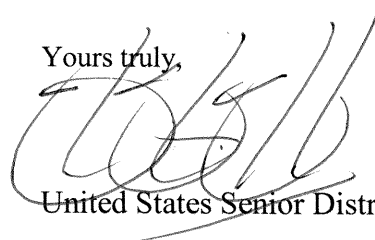 Yours truly,
United States Senior Distr